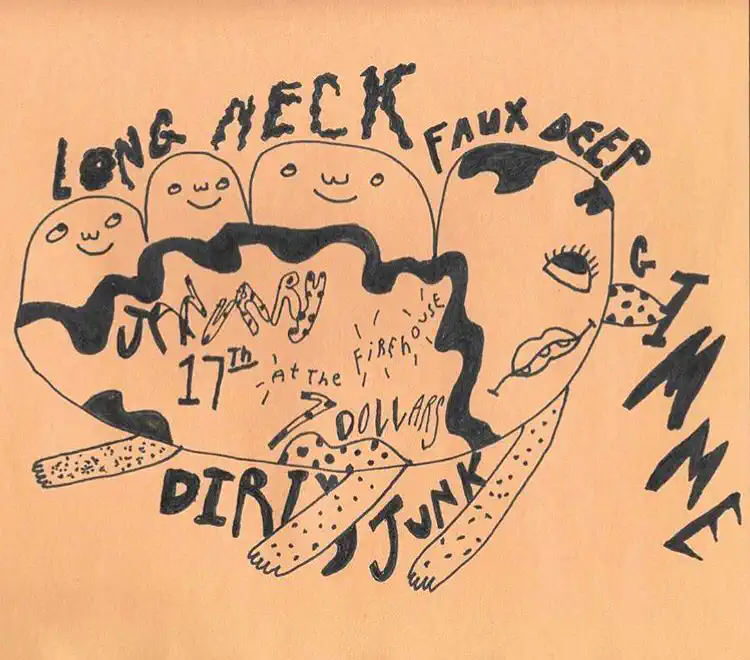 LONG NECK
FAUX DEEP
GIMME
JANUARY
17TH
At The FIREHOUSE
7 DOLLARS
DIRTY JUNK